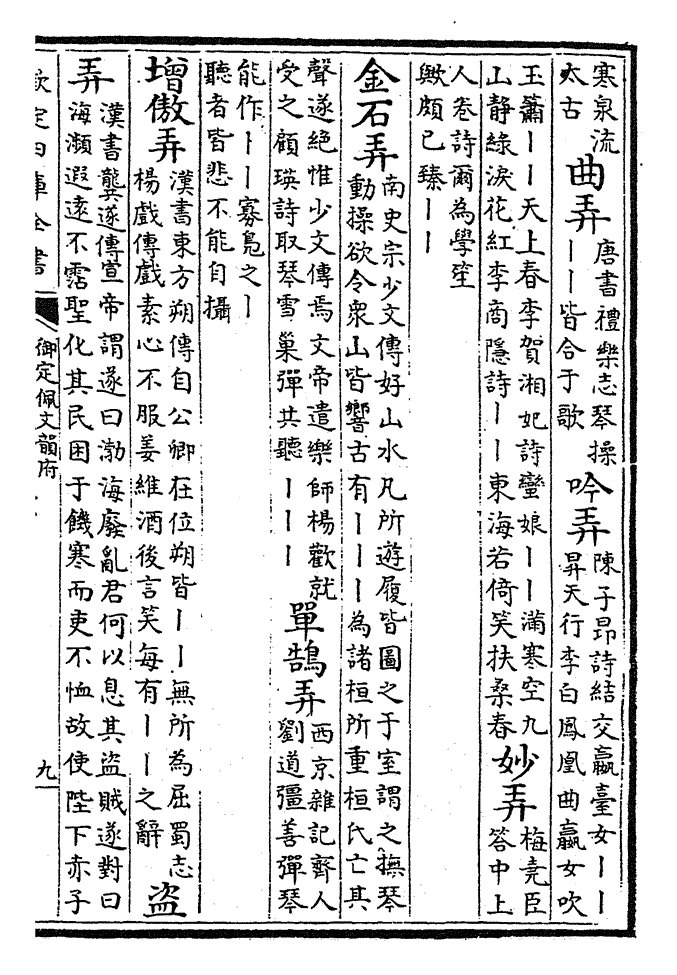 寒泉流
太古
曲弄
唐書禮樂志琴操
｜｜皆合于歌
吟弄
陳子昂詩結交嬴臺女｜｜
昇天行李白鳳凰曲嬴女吹
玉簫｜｜天上春李賀湘妃詩蠻娘｜｜滿寒空九
山靜綠淚花紅李商隱詩｜｜東海若倚笑扶桑春
妙弄
梅堯臣
答中上
人卷詩爾為學
歟頗已臻｜｜
金石弄
南史宗少文傳好山水凡所遊履皆圖之于室謂之撫琴
動操欲令衆山皆響古有｜｜｜為諸桓所重桓氏亡其
聲遂絕惟少文傳焉文帝遣樂師楊歡就
受之顧瑛詩取琴雪巢彈共聽｜｜｜
單鵠弄
西京雜記齊人
劉道彊善彈琴
能作｜｜寡鳧之｜
聽者皆悲不能自攝
增傲弄
漢書東方朔傳自公卿在位朔皆｜｜無所為屈蜀志
楊戲傳戲素心不服姜維酒後言笑每有｜｜之辭
盜
弄
漢書龔遂傳宣帝謂遂曰渤海廢亂君何以息其盜賊遂對曰
海瀕遐遠不霑聖化其民困于饑寒而吏不恤故使陛下赤子
欽定四庫全書
御定佩文韻府
九